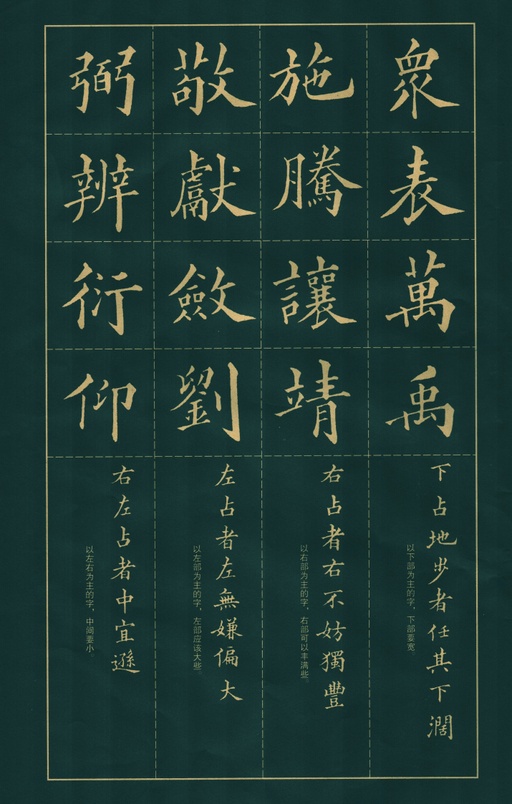 衆表萬禹
下占地步者任其下濶
以下部为主的字，下部要宽。
施騰讓靖
右占者右不妨獨豐
以右部为主的字，右部可以丰满些。
敬獻斂劉
左占者左無嫌偏大
以左部为主的字，左部应该大些。
弼辨衍仰
右左占者中宜遜
以左右为主的字，中间要小。